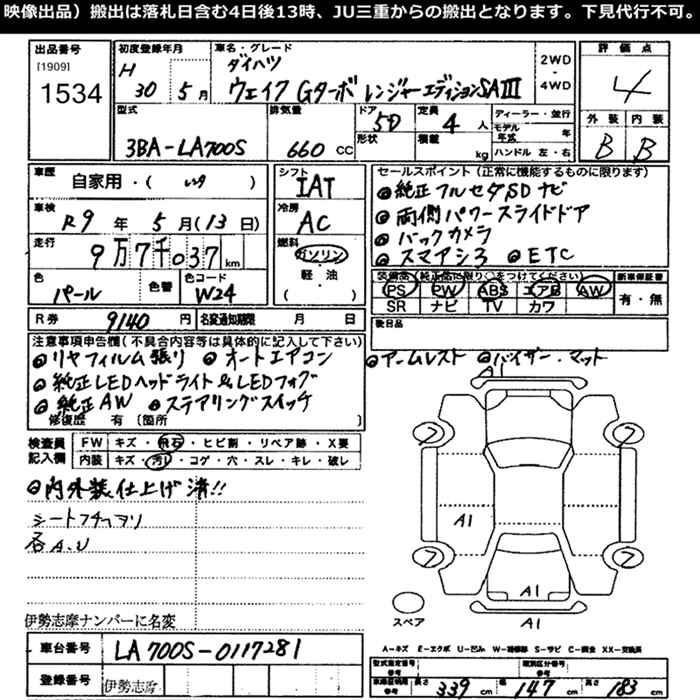 映像出品）搬出は落札日含む4日後13時、JU三重からの搬出となります。下見代行不可。
出品番号 初度登録年月 車名・グレード 評価点
[1909] H ダイハツ 2WD
1534 30 5月 ウェイク Gターボ レンジャーエディションSAⅢ 4WD 4
型式 排気量 ドア 定員 ディーラー・並行 外装 内装
3BA-LA700S 660 CC 5D 4人 モデル年式 年 B B
形状 積載 kg ハンドル 左・右
車歴 シフト セールスポイント（正常に機能するものに限ります）
自家用・( ) IAT 純正フルセグSDナビ
車検 冷房 両側パワースライドドア
R9年 5月(13日) AC バックカメラ
走行 燃料 スマアシ3 ETC
9万7千037km ガソリン
色 色替 色コード 軽・油 装備品（純正品に限り○をつけてください） 新車保証書
パール W24 ( ) PS PW ABS エアB AW 有・無
SR ナビ TV カワ
R券 9140円 名変通知期限 月 日 後日品
注意事項申告欄（不具合内容等は具体的に記入して下さい） アームレスト バイザー・マット
リヤフィルム張り オートエアコン
純正LEDヘッドライト&LEDフォグ
純正AW ステアリングスイッチ
修復歴 有〔箇所
検査員記入欄 FW キズ・飛石・ヒビ割・リペア跡・X要
内装 キズ・汚れ・コゲ・穴・スレ・キレ・破レ
内外装仕上げ済!!
各A.U
A1
フ フ
A1
フ フ
A1
A1
スペア
伊勢志摩ナンバーに名変
A-キズ E-エクボ U-凹み W-補修跡 S-サビ C-腐食 XX-交換済
車台番号 LA700S-0117281
型式指定番号 類別区分番号
登録番号 伊勢志摩
車庫証明用参考 長さ 339cm 幅 147cm 高さ 183cm